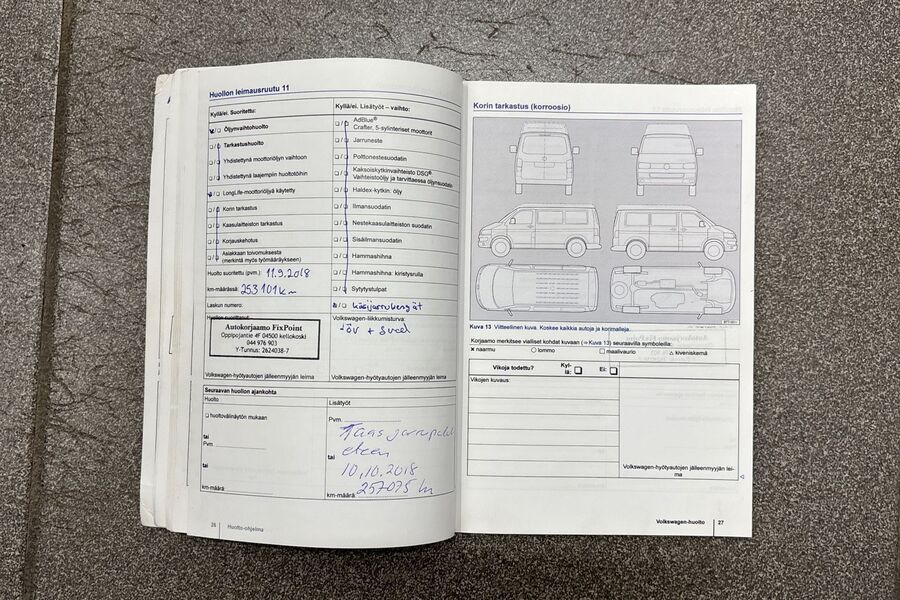 Huollon leimausruutu 11
Kyllä/ei. Suoritettu:
Öljynvaihtohuolto
Tarkastushuolto
Yhdistettynä moottoriöljyn vaihtoon
Yhdistettynä laajempiin huoltotöihin
LongLife-moottoriöljyä käytetty
Korin tarkastus
Kaasulaitteiston tarkastus
Korjauskehotus
Asiakkaan toivomuksesta
(merkintä myös työmääräykseen)
Huolto suoritettu (pvm.): 11.9.2018
km-määrässä: 253101 km
Laskun numero:
Huollon suorittanut:
Autokorjaamo FixPoint
Oppipojantie 4F 04500 kellokoski
044 976 903
Y-Tunnus: 2624038-7
Volkswagen-hyötyautojen jälleenmyyjän leima
Kyllä/ei. Lisätyöt – vaihto:
AdBlue®
Crafter, 5-sylinteriset moottorit
Jarruneste
Polttonestesuodatin
Kaksoiskytkinvaihteisto DSG®
Vaihteistoöljy ja tarvittaessa öljynsuodatin
Haldex-kytkin: öljy
Ilmansuodatin
Nestekaasulaitteiston suodatin
Sisäilmansuodatin
Hammashihna
Hammashihna: kiristysrulla
Sytytystulpat
käsijarrukengät
Volkswagen-liikkumisturva:
Volkswagen-hyötyautojen jälleenmyyjän leima
Seuraavan huollon ajankohta
Huolto
huoltovälinäytön mukaan
tai
Pvm.
tai
km-määrä:
Lisätyöt
Pvm.
eteen
tai
10.10.2018
km-määrä: 257075 km
26 Huolto-ohjelma
Korin tarkastus (korroosio)
Kuva 13 Viitteellinen kuva. Koskee kaikkia autoja ja korimalleja.
Korjaamo merkitsee vialliset kohdat kuvaan (⇒ Kuva 13) seuraavilla symboleilla:
× naarmu ○ lommo □ maalivaurio △ kiveniskemä
Vikoja todettu? Kyl-
lä: Ei:
Vikojen kuvaus:
Volkswagen-hyötyautojen jälleenmyyjän lei-
ma
Volkswagen-huolto 27